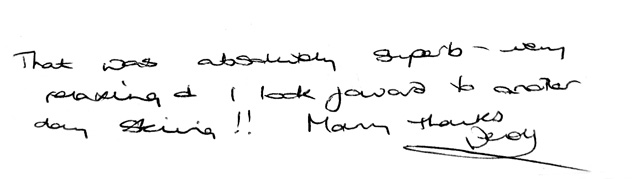 That was absolutely superb - very
relaxing & I look forward to another
day skiing!! Many thanks